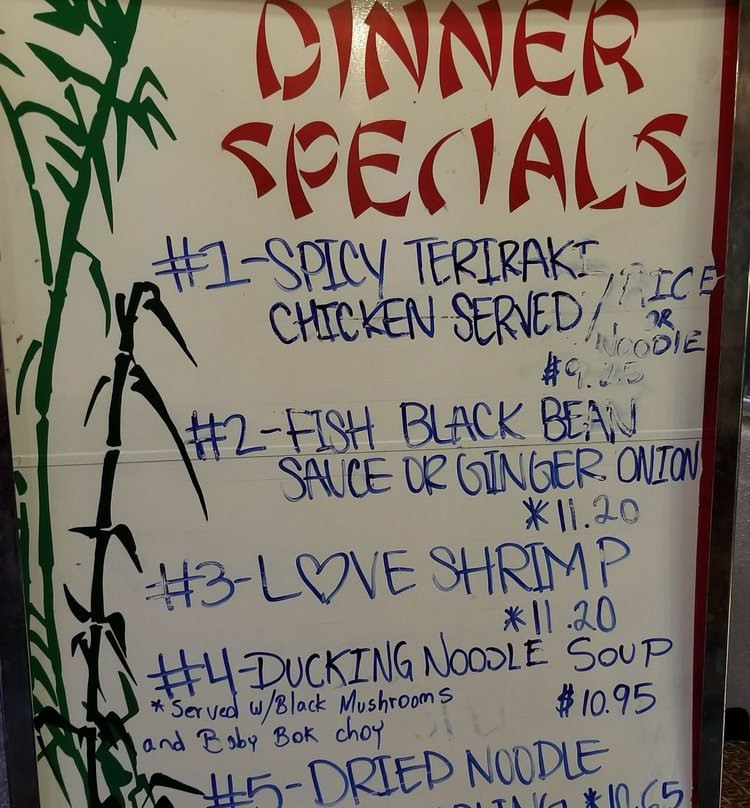 DINNER
SPECIALS
#1-SPICY TERIRAKI
CHICKEN SERVED / RICE
OR
NOODLE
$9.25
#2-FISH BLACK BEAN
SAUCE OR GINGER ONION
*11.20
#3-L♡VE SHRIMP
*11.20
#4-DUCKING NOODLE SOUP
*Served w/Black Mushrooms
$10.95
and Baby Bok choy
#5-DRIED NOODLE
*10.65